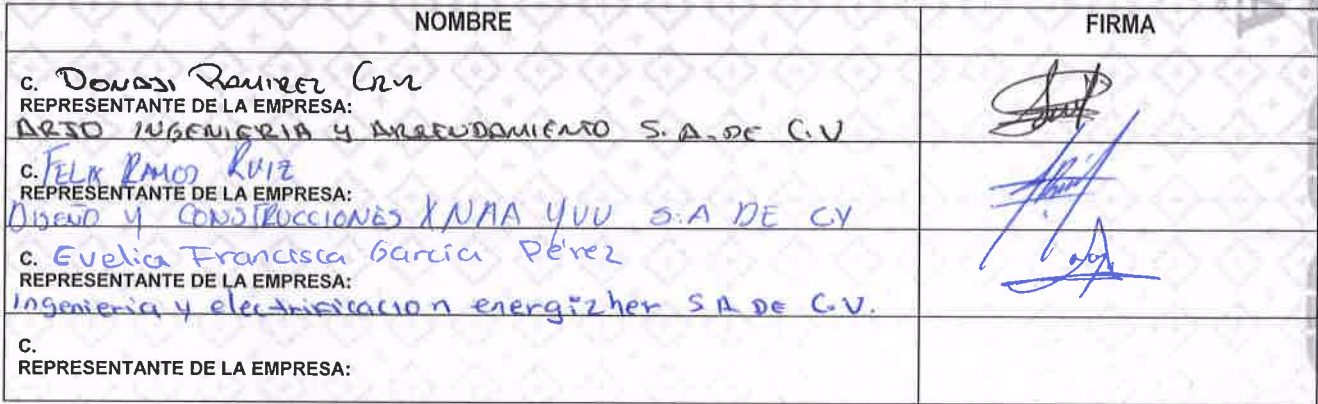 NOMBRE FIRMA
C. DONAJI RAMIREZ CRUZ
REPRESENTANTE DE LA EMPRESA:
ARJO INGENIERIA Y ARRENDAMIENTO S. A. DE C.V
C. FELIX RAMOS RUIZ
REPRESENTANTE DE LA EMPRESA:
DISEÑO Y CONSTRUCCIONES XNAA YUU S.A DE CV
C. Evelia Francisca Garcia Pérez
REPRESENTANTE DE LA EMPRESA:
Ingenieria y electrificacion energizher S A DE C.V.
C.
REPRESENTANTE DE LA EMPRESA: